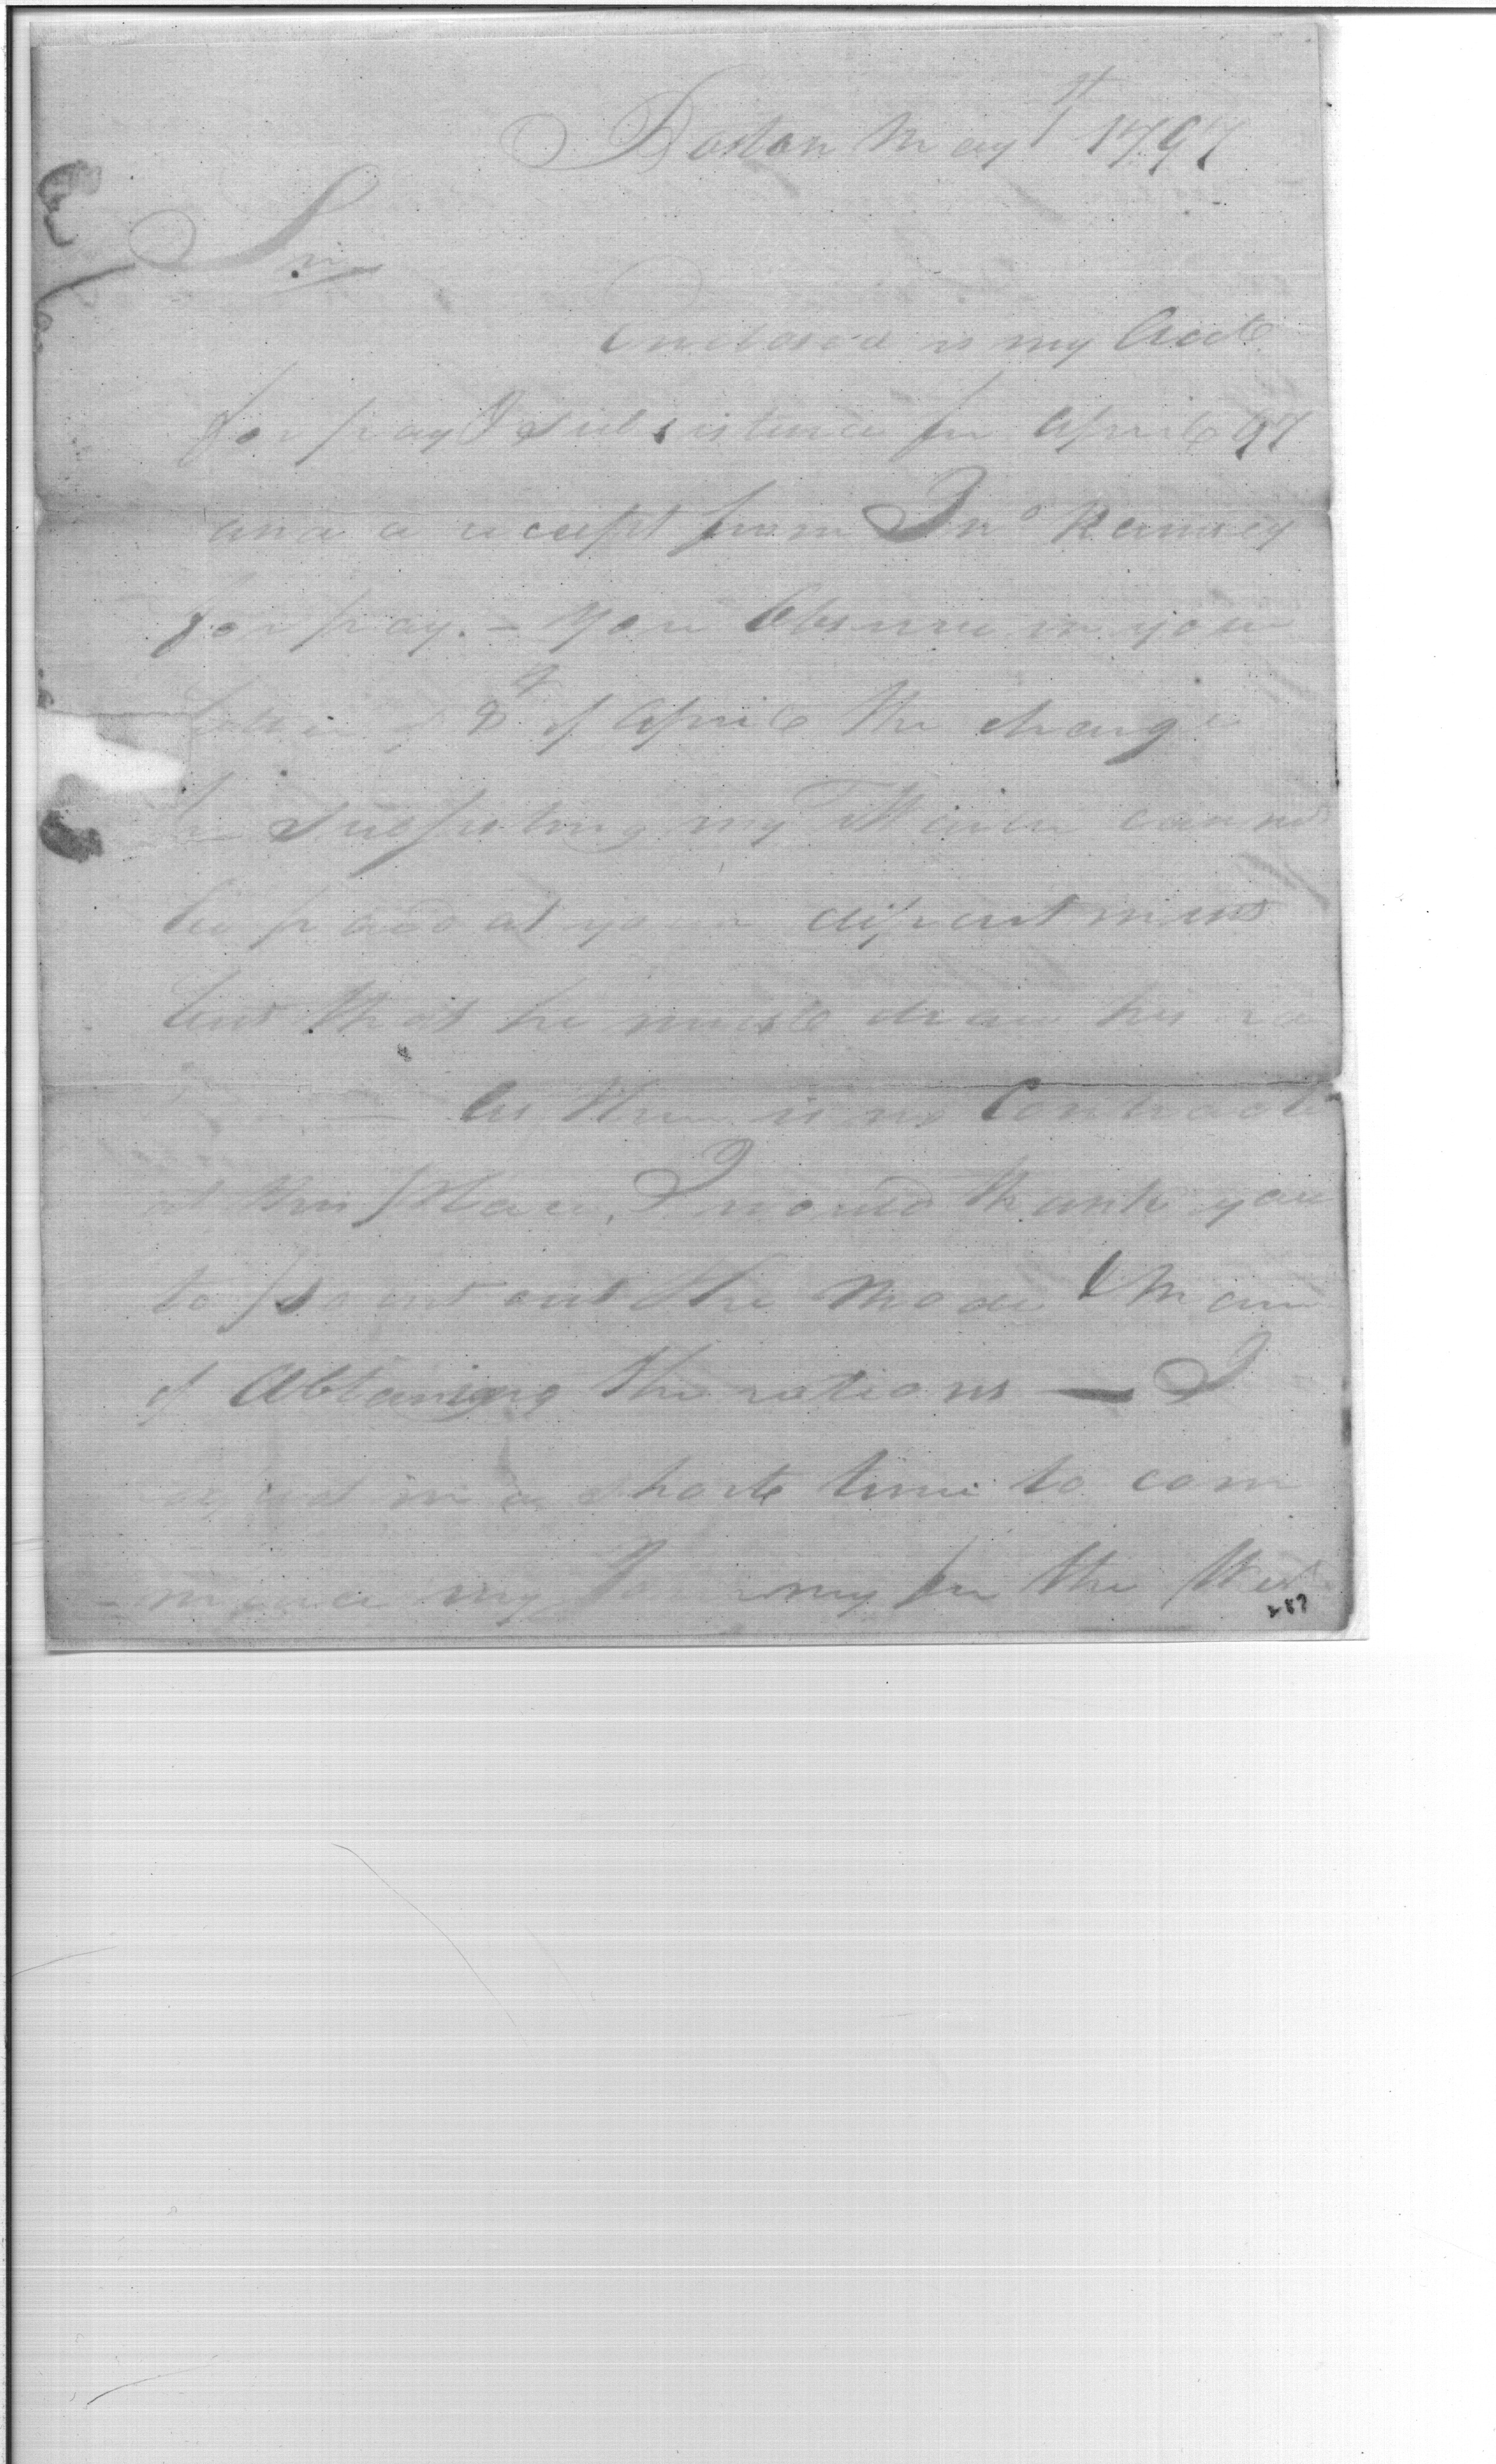 Boston May 1st 1797
Sir
Enclosed is my Acct
for pay & subsistence for April 97
and a receipt from Jno Ramsey
for pay. - You Observe in your
letter of 8th of April the charge
for subsisting my Waiter cannot
be paid at your department
but that he must draw his ra
As there is no Contractor
at this Place, I would thank you
to point out the Mode & Man
of Obtaining the rations — I
in a short time to com
my for the West